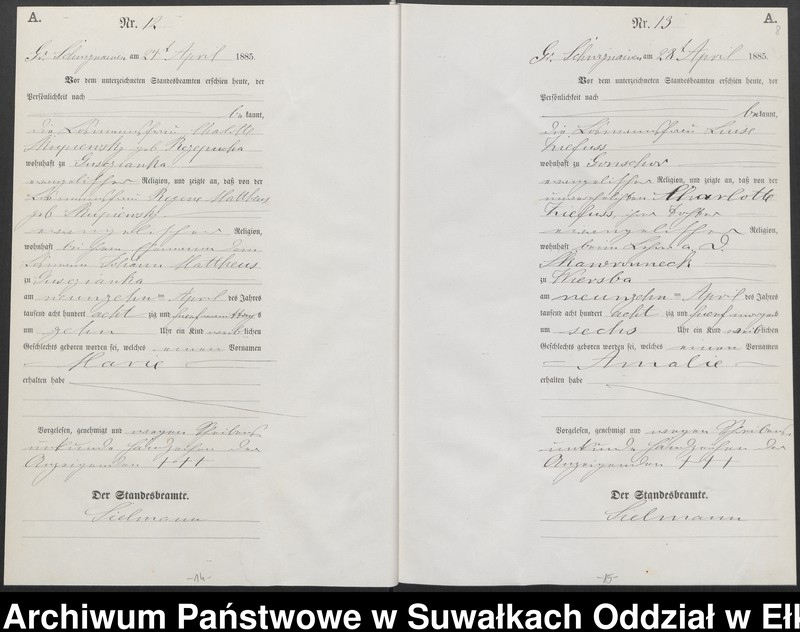 A.
Nr. 12
Gr. Schwignainen am 24t April 1885.
Vor dem unterzeichneten Standesbeamten erschien heute, der
Persönlichkeit nach
bekannt,
die Losmannsfrau Charlotte
geb
wohnhaft zu Guszianka
evangelischer Religion, und zeigte an, daß von der
Losmannsfrau Regine Mattheus
geb
evangelischer Religion,
wohnhaft bei ihrem Ehemann dem
Losmann Johann Mattheus
zu Gusczianka
am neunzehn ten April des Jahres
tausend acht hundert achtzig und fuenf
um zehn Uhr ein Kind weiblichen
Geschlechts geboren worden sei, welches einen Vornamen
Marie
erhalten habe
Vorgelesen, genehmigt und wegen Schreibens
unkunde Handzeichen der
Anzeigenden +++
Der Standesbeamte.
Sielmann
-14-
Nr. 13
A.
8
Gr. Schwignainen am 28t April 1885.
Vor dem unterzeichneten Standesbeamten erschien heute, der
Persönlichkeit nach
bekannt,
die Losmannsfrau Luise
wohnhaft zu Gonscher
evangelischer Religion, und zeigte an, daß von der
unverehelichten Charlotte
ihrer Tochter
evangelischer Religion,
wohnhaft beim Lehrer a. D.
Skawrunneck
zu Wiersba
am neunzehn ten April des Jahres
tausend acht hundert achtzig und fuenf
um sechs Uhr ein Kind weiblichen
Geschlechts geboren worden sei, welches einen Vornamen
Amalie
erhalten habe
Vorgelesen, genehmigt und wegen Schreibens
unkunde Handzeichen der
Anzeigenden +++
Der Standesbeamte.
Sielmann
-15-
Archiwum Państwowe w Suwałkach Oddział w Ełk